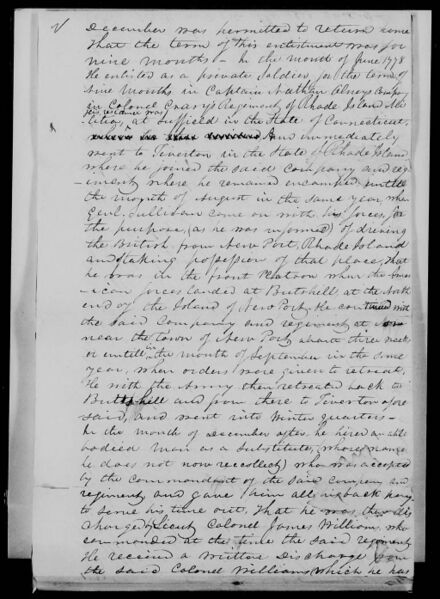 December was permitted to return home
that the term of this enlistment was for
nine months - in the month of June 1778
He enlisted as a private Soldier, for the term of
Nine Months in Captain Nathan Olneys Company
in Colonel Crary's Regiment of Rhode Island Mi
his residence was
litia, at Suffield in the State of Connecticut,
and immediately
went to Tiverton in the State of Rhode Island
where he joined the said Company and reg-
iment where he remained encamped untill
the month of August in the same year when
Genl. Sullivan came on with his forces, for
the purpose, (as he was informed) of driving
the British from New Port, Rhode Island
and taking possession of that place, that
he was in the front Platoon when the Amer
ican forces landed at Buttshell at the North
end of the Island of New Port, He continued with
the said Company and regiment at
near the town of New Port about three weeks
or untill in the month of September in the same
year, when orders were given to retreat.
He with the Army then retreated back to
Buttshell and from there to Tiverton afore
said, and went into Winter quarters -
in the month of December after he hired an able
bodied man as a Substitute, (whose name
he does not now recollect) who was accepted
by the commandant of the said company and
regiment and gave him all his back pay
to serve his time out. That he was then dis
charged by Lieut Colonel James William, who
commanded at the time the said regiment
He received a written Discharge from
the said Colonel Williams, which he has